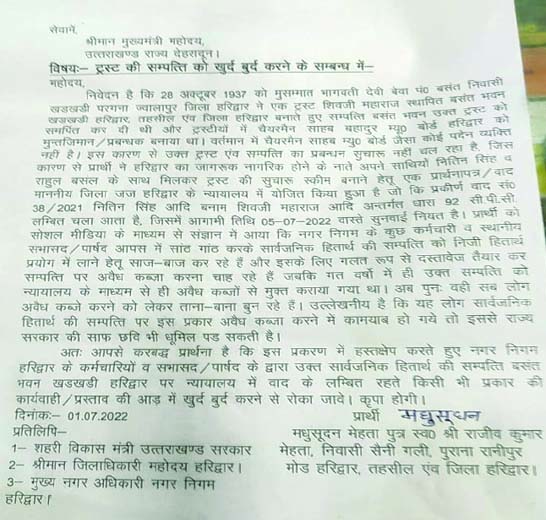 सेवामें,
श्रीमान मुख्यमंत्री महोदय,
उत्तराखण्ड राज्य देहरादून।
विषयः– ट्रस्ट की सम्पत्ति को खुर्द बुर्द करने के सम्बन्ध में–
महोदय,
निवेदन है कि 28 अक्टूबर 1937 को मुसम्मात भागवती देवी बेवा पं0 बसंत निवासी
खडखडी परगना ज्वालापुर जिला हरिद्वार ने एक ट्रस्ट शिवजी महाराज स्थापित बसंत भवन
खडखडी हरिद्वार, तहसील एंव जिला हरिद्वार बनाते हुए सम्पत्ति बसंत भवन उक्त ट्रस्ट को
समर्पित कर दी थी और ट्रस्टीयों में चैयरमैन साहब बहादुर म्यु0 बोर्ड हरिद्वार को
मुन्तजिमान/प्रबन्धक बनाया था। वर्तमान में चैयरमैन साहब म्यु0 बोर्ड जैसा कोई पदेन व्यक्ति
नहीं है। इस कारण से उक्त ट्रस्ट एंव सम्पत्ति का प्रबन्धन सुचारू नहीं चल रहा है, जिस
कारण से प्रार्थी ने हरिद्वार का जागरूक नागरिक होने के नाते अपने साथियों नितिन सिंह व
राहुल बसल के साथ मिलकर ट्रस्ट की सुचारू स्कीम बनाने हेतु एक प्रार्थनापत्र/वाद
माननीय जिला जज हरिद्वार के न्यायालय में योजित किया हुआ है जो कि प्रकीर्ण वाद सं0
38/2021 नितिन सिंह आदि बनाम शिवजी महाराज आदि अन्तर्गत धारा 92 सी.पी.सी.
लम्बित चला आता है, जिसमें आगामी तिथि 05-07-2022 वास्ते सुनवाई नियत है। प्रार्थी को
सोशल मीडिया के माध्यम से संज्ञान में आया कि नगर निगम के कुछ कर्मचारी व स्थानीय
सभासद/पार्षद आपस में सांठ गांठ करके सार्वजनिक हितार्थ की सम्पत्ति को निजी हितार्थ
प्रयोग में लाने हेतु साज–बाज कर रहे हैं और इसके लिए गलत रूप से दस्तावेज तैयार कर
सम्पत्ति पर अवैध कब्जा करना चाह रहे हैं जबकि गत वर्षों में ही उक्त सम्पत्ति को
न्यायालय के माध्यम से ही अवैध कब्जों से मुक्त कराया गया था। अब पुनः वही सब लोग
अवैध कब्जे करने को लेकर ताना–बाना बुन रहे हैं। उल्लेखनीय है कि यह लोग सार्वजनिक
हितार्थ की सम्पत्ति पर इस प्रकार अवैध कब्जा करने मे कामयाब हो गये तो इससे राज्य
सरकार की साफ छवि भी धूमिल पड सकती है।
अतः आपसे करबद्ध प्रार्थना है कि इस प्रकरण में हस्तक्षेप करते हुए नगर निगम
हरिद्वार के कर्मचारियों व सभासद/पार्षद के द्वारा उक्त सार्वजनिक हितार्थ की सम्पत्ति बसंत
भवन खडखडी हरिद्वार पर न्यायालय में वाद के लम्बित रहते किसी भी प्रकार की
कार्यवाही/प्रस्ताव की आड़ में खुर्द बुर्द करने से रोका जावे। कृपा होगी।
दिनांकः– 01.07.2022 प्रार्थी मधुसूदन
प्रतिलिपि– मधुसूदन मेहता पुत्र स्व0 श्री राजीव कुमार
1– शहरी विकास मंत्री उत्तराखण्ड सरकार मेहता, निवासी सैनी गली, पुराना रानीपुर
2– श्रीमान जिलाधिकारी महोदय हरिद्वार। मोड हरिद्वार, तहसील एंव जिला हरिद्वार।
3– मुख्य नगर अधिकारी नगर निगम
हरिद्वार।